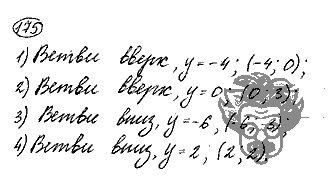 175
1) Ветви вверх, y = -4; (-4; 0);
2) Ветви вверх, y = 0; (0; 3);
3) Ветви вниз, y = -6, (-6, 5);
4) Ветви вниз, y = 2; (2, 2).